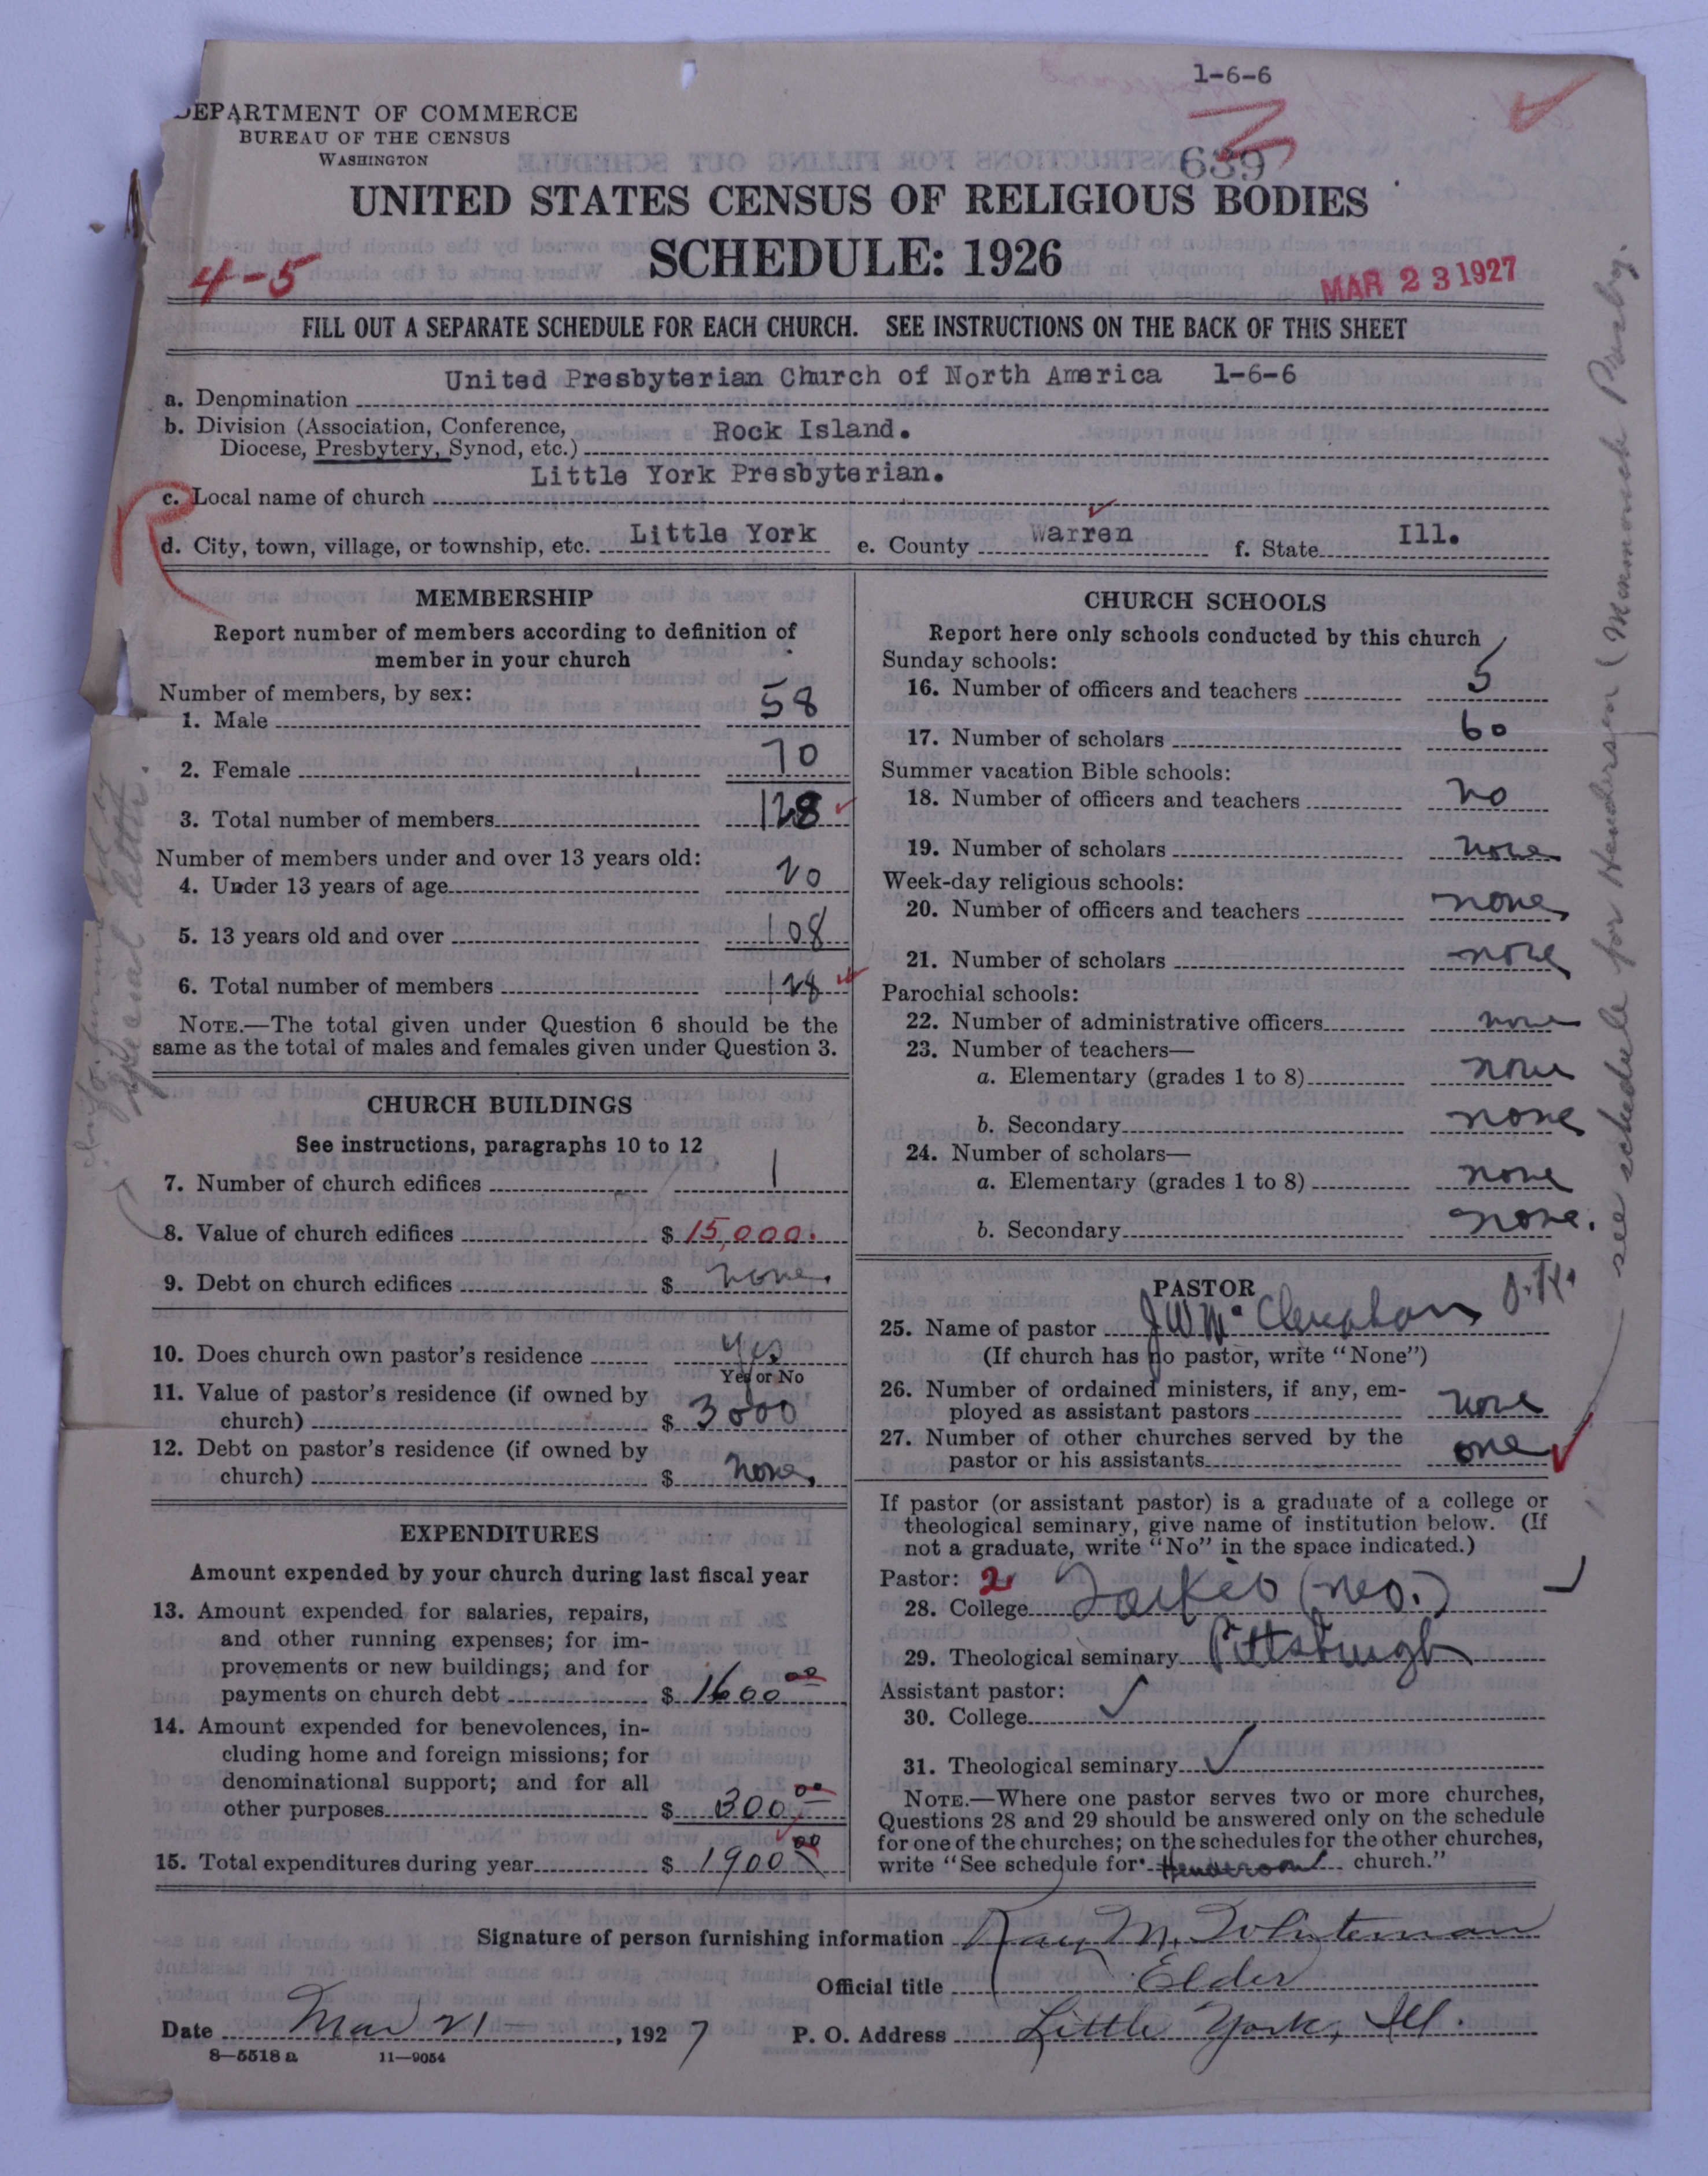 1-6-6
DEPARTMENT OF COMMERCE
BUREAU OF THE CENSUS
WASHINGTON
639
UNITED STATES CENSUS OF RELIGIOUS BODIES
SCHEDULE: 1926
4-5
MAR 23 1927
FILL OUT A SEPARATE SCHEDULE FOR EACH CHURCH. SEE INSTRUCTIONS ON THE BACK OF THIS SHEET
a. Denomination United Presbyterian Church of North America 1-6-6
b. Division (Association, Conference,
Diocese, Presbytery, Synod, etc.) Rock Island.
c. Local name of church Little York Presbyterian.
d. City, town, village, or township, etc. Little York e. County Warren f. State Ill.
MEMBERSHIP
Report number of members according to definition of
member in your church
Number of members, by sex:
1. Male 58
2. Female 70
3. Total number of members 128
Number of members under and over 13 years old:
4. Under 13 years of age 20
5. 13 years old and over 108
6. Total number of members 128
NOTE.—The total given under Question 6 should be the
same as the total of males and females given under Question 3.
CHURCH BUILDINGS
See instructions, paragraphs 10 to 12
7. Number of church edifices 1
8. Value of church edifices $ 15,000.
9. Debt on church edifices $ none.
10. Does church own pastor's residence Yes
Yes or No
11. Value of pastor's residence (if owned by
church) $ 3000
12. Debt on pastor's residence (if owned by
church) $ none.
EXPENDITURES
Amount expended by your church during last fiscal year
13. Amount expended for salaries, repairs,
and other running expenses; for im-
provements or new buildings; and for
payments on church debt $ 1600 00
14. Amount expended for benevolences, in-
cluding home and foreign missions; for
denominational support; and for all
other purposes $ 300 00
15. Total expenditures during year $ 1900 00
CHURCH SCHOOLS
Report here only schools conducted by this church
Sunday schools:
16. Number of officers and teachers 5
17. Number of scholars 60
Summer vacation Bible schools:
18. Number of officers and teachers no
19. Number of scholars none
Week-day religious schools:
20. Number of officers and teachers none
21. Number of scholars none
Parochial schools:
22. Number of administrative officers none
23. Number of teachers—
a. Elementary (grades 1 to 8) none
b. Secondary none
24. Number of scholars—
a. Elementary (grades 1 to 8) none
b. Secondary none.
PASTOR
25. Name of pastor J W Mc Clenahan O.K.
(If church has no pastor, write "None")
26. Number of ordained ministers, if any, em-
ployed as assistant pastors none
27. Number of other churches served by the
pastor or his assistants one
If pastor (or assistant pastor) is a graduate of a college or
theological seminary, give name of institution below. (If
not a graduate, write "No" in the space indicated.)
Pastor: 2
28. College Tarkio (Mo.)
29. Theological seminary Pittsburgh
Assistant pastor:
30. College
31. Theological seminary
NOTE.—Where one pastor serves two or more churches,
Questions 28 and 29 should be answered only on the schedule
for one of the churches; on the schedules for the other churches,
write "See schedule for Henderson church."
Signature of person furnishing information Ray M. Whiteman
Official title Elder
Date Mar 21, 1927 P. O. Address Little York, Ill.
8-5518 a 11-9054
Info. furnished by
special letter.
see schedule for Henderson (Monmouth Presby.